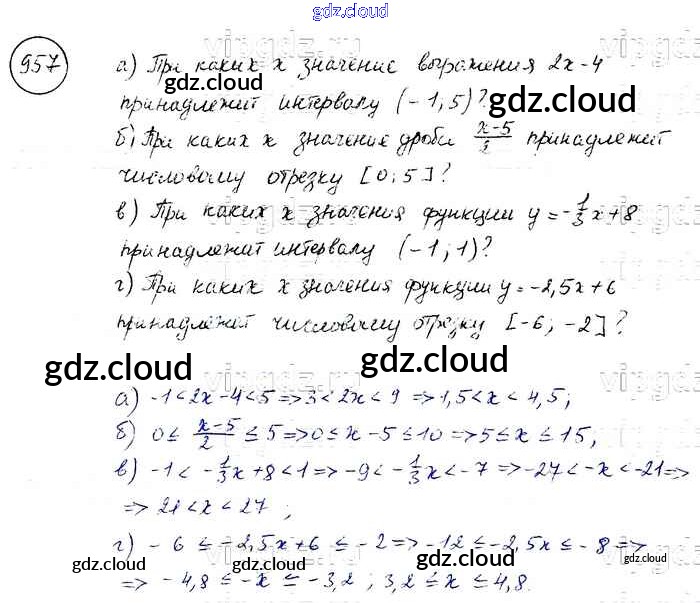 gdz.cloud
957
а) При каких x значение выражения 2x-4
принадлежит интервалу (-1; 5)?
б) При каких x значение дроби x-5/2 принадлежит
числовому отрезку [0; 5]?
в) При каких x значения функции y = -1/3x+8
принадлежат интервалу (-1; 1)?
г) При каких x значения функции y = -2,5x+6
принадлежат числовому отрезку [-6; -2]?
gdz.cloud gdz.cloud gdz.cloud
а) -1<2x-4<5=>3<2x<9=>1,5<x<4,5;
б) 0≤ x-5/2 ≤5=>0≤x-5≤10=>5≤x≤15;
в) -1< -1/3x+8<1=>-9<-1/3x<-7=>-27<-x<-21=>
=> 21<x<27;
г) -6≤-2,5x+6≤-2=>-12≤-2,5x≤-8=>
=> -4,8≤-x≤-3,2; 3,2≤x≤4,8.
gdz.cloud gdz.cloud gdz.cloud gdz.cloud